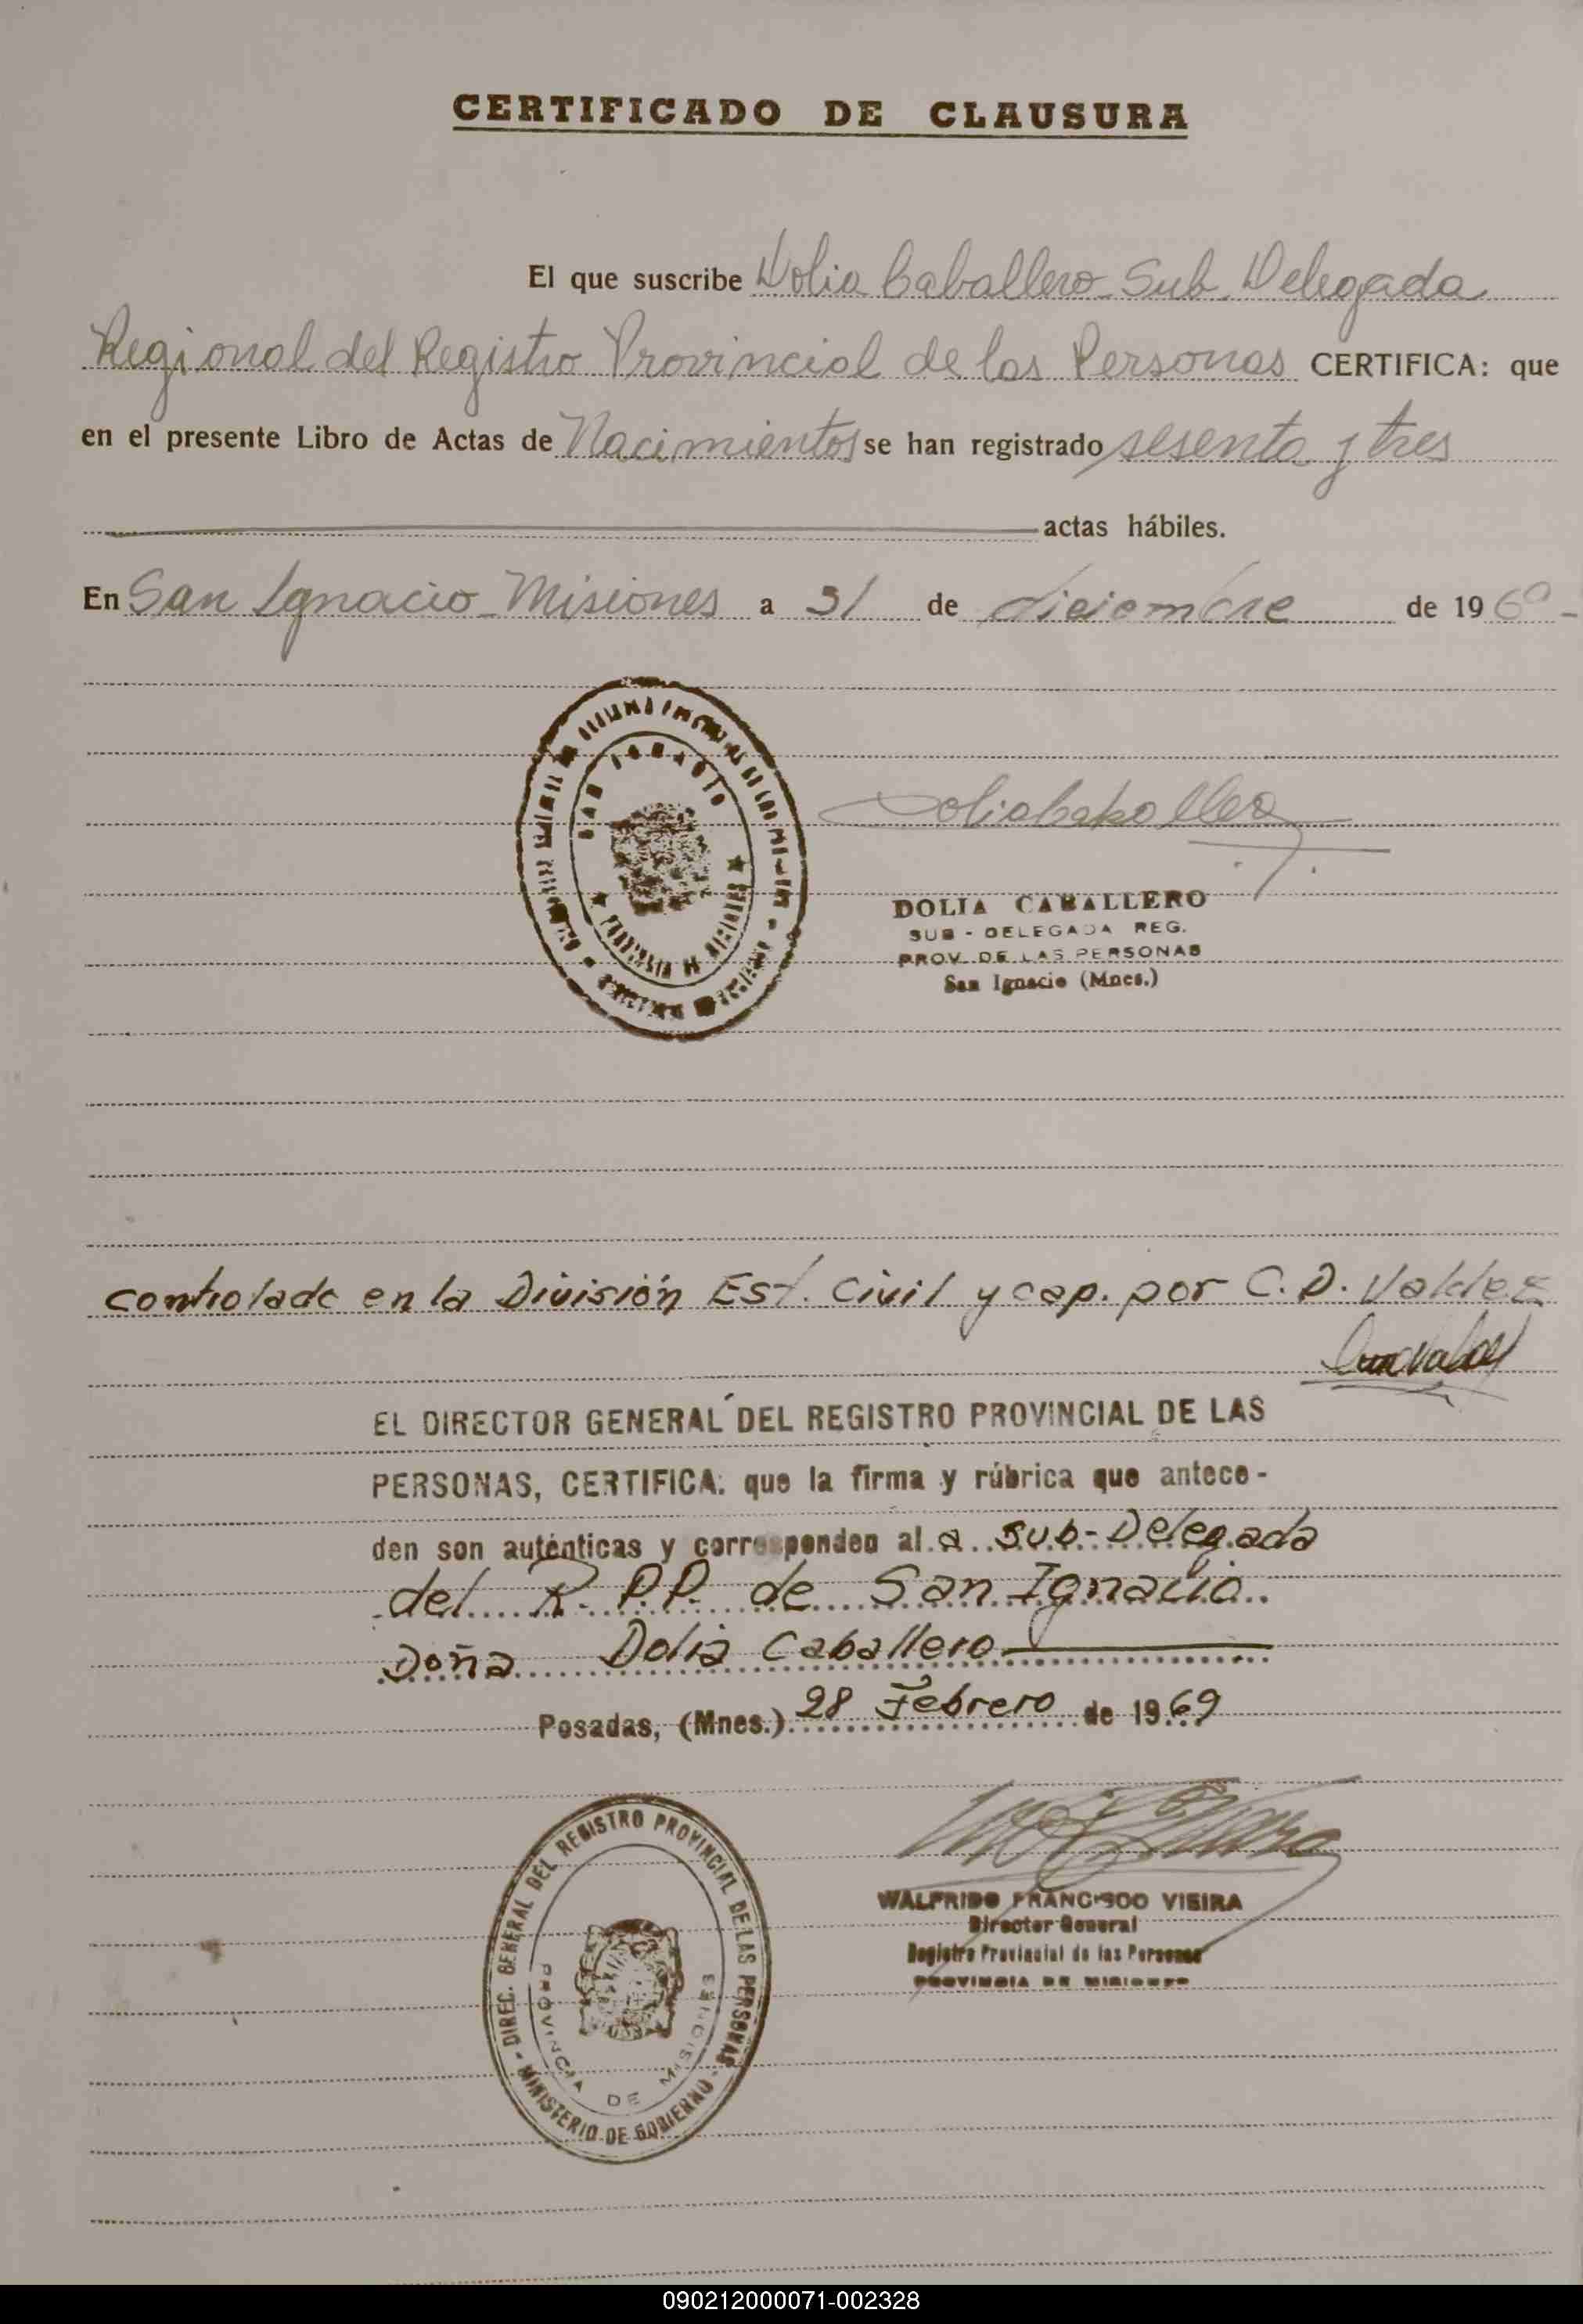 CERTIFICADO DE CLAUSURA
El que suscribe Dolia Caballero Sub. Delegada
Regional del Registro Provincial de las Personas CERTIFICA: que
en el presente Libro de Actas de Nacimientos se han registrado sesenta y tres
actas hábiles.
En San Ignacio Misiones a 31 de diciembre de 196
SAN IGNACIO
PROVINCIA DE MISIONES
DOLIA CABALLERO
SUB - DELEGADA REG.
PROV. DE LAS PERSONAS
San Ignacio (Mnes.)
controlado en la División Est. Civil y cap. por C. D. Valdez
EL DIRECTOR GENERAL DEL REGISTRO PROVINCIAL DE LAS
PERSONAS, CERTIFICA: que la firma y rúbrica que antece-
den son auténticas y corresponden al a Sub-Delegada
del R. P.P. de San Ignacio
Doña Dolia Caballero
Posadas, (Mnes.) 28 Febrero de 1969
DIREC. GENERAL DEL REGISTRO PROVINCIAL DE LAS PERSONAS - MINISTERIO DE GOBIERNO -
PROVINCIA DE MISIONES
WALFRIDO FRANCISCO VIEIRA
Director General
Registro Provincial de las Personas
PROVINCIA DE MISIONES
090212000071-002328